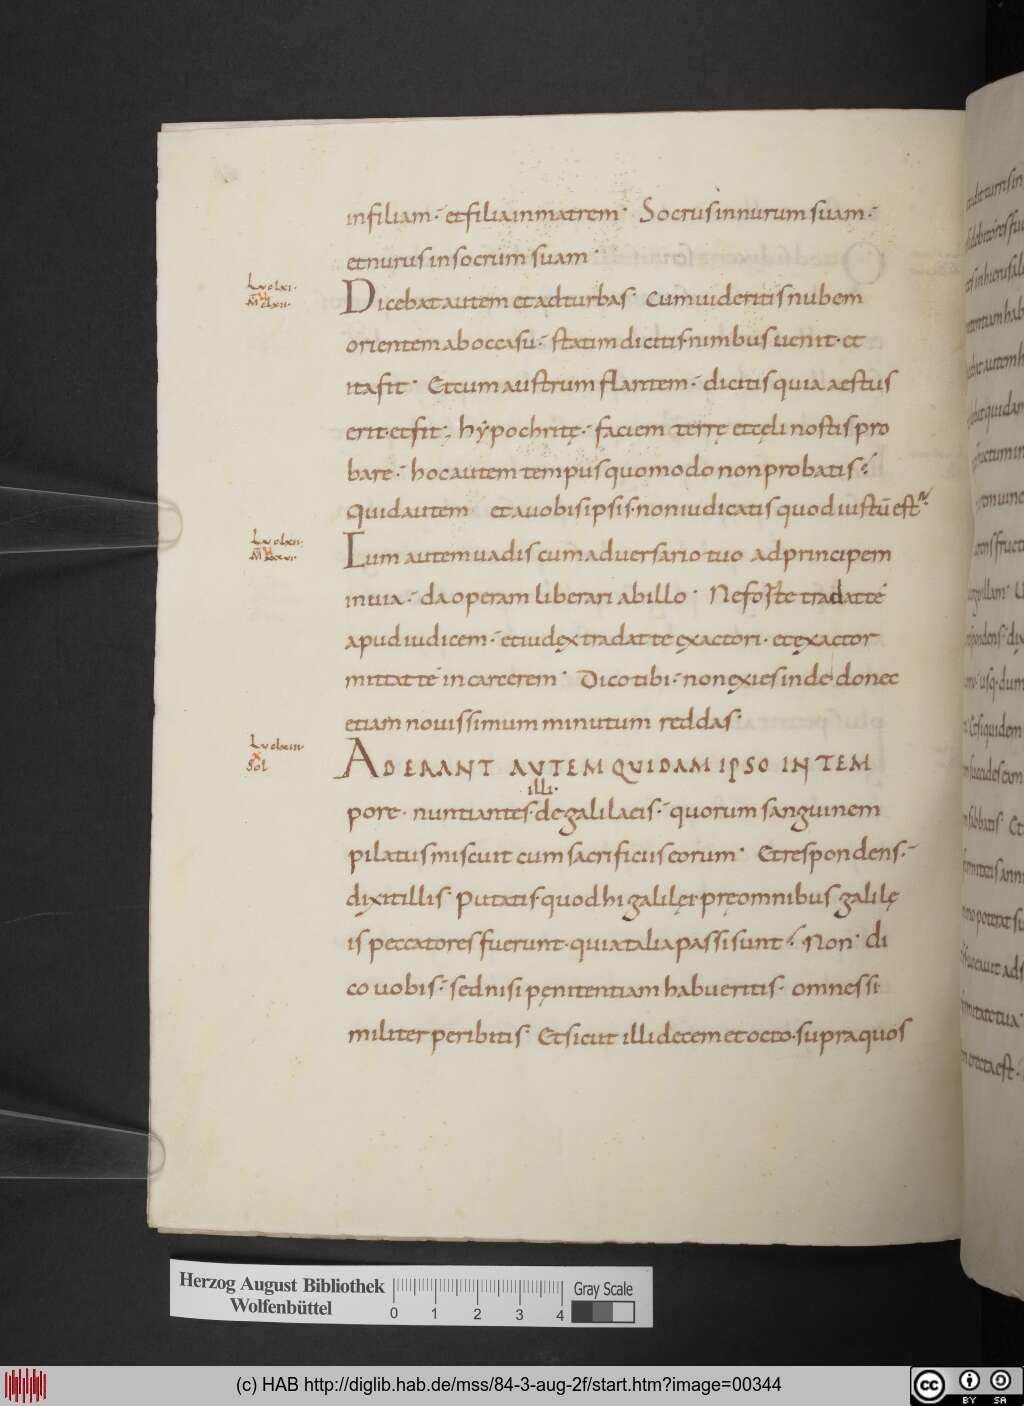 in filiam. et filia in matrem. Socrus in nurum suam.
et nurus in socrum suam.
Lu clxi.
Dicebat autem et ad turbas. Cum uideritis nubem
M clxii.
orientem ab occasū. statim dicitis. nimbus uenit. et
ita fit. Et cum austrum flantem. dicitis quia aestus
erit. et fit. hẏpochritę. faciem terrę et cęli nostis pro
bare. hoc autem tempus quomodo non probatis?
Quid autem et a uobis ipsis. non iudicatis quod iustū est?
Lu clxii.
Cum autem uadis cum aduersario tuo ad principem
in uia. da operam liberari ab illo. Ne forte tradat te
apud iudicem. et iudex tradat te exactori. et exactor
mittat te in carcerem. Dico tibi. non exies inde donec
etiam nouissimum minutum reddas.
Lu clxiii.
ADERANT AUTEM QUIDAM IPSO IN TEM
Sol
illi.
pore. nuntiantes. de galilaeis. quorum sanguinem
pilatus miscuit cum sacrificiis eorum. Et respondens.
dixit illis. Putatis quod hi galilęi pręomnibus galilę
is peccatores fuerunt. quia talia passi sunt? Non di
co uobis. sed nisi pęnitentiam habueritis. omnes si
militer peribitis. Et sicut illi decem et octo. supra quos
Herzog August Bibliothek
Wolfenbüttel
0 1 2 3 4
Gray Scale
(c) HAB http://diglib.hab.de/mss/84-3-aug-2f/start.htm?image=00344
cc BY SA